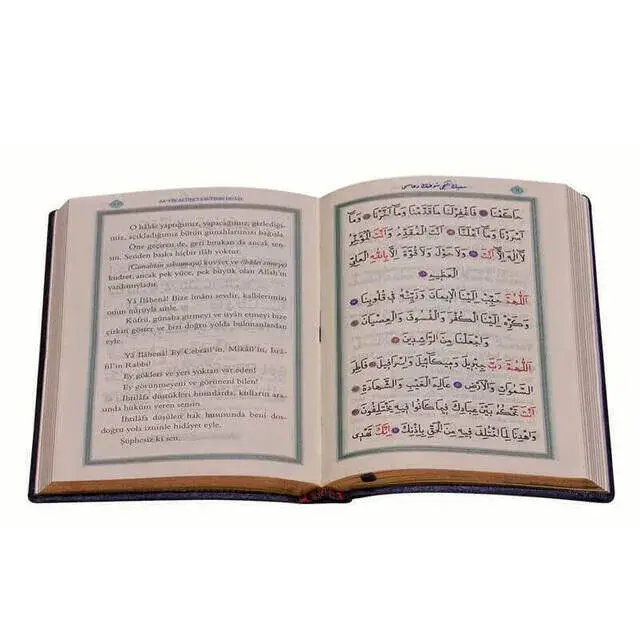 O hâlde yaptığımız, yapacağımız, gizlediği-
miz, açıkladığımız bütün günahlarımızı bağışla.
Öne geçiren de, geri bırakan da ancak sen-
sin. Senden başka hiçbir ilâh yoktur.
(Günahtan sakınmaya) kuvvet ve (ibâdet etmeye)
kudret, ancak pek yüce, pek büyük olan Allah'ın
yardımıyladır.
Yâ İlâhenâ! Bize îmânı sevdir, kalblerimizi
onun nûruyla süsle.
Küfrü, günaha girmeyi ve isyân etmeyi bize
çirkin göster ve bizi doğru yolda bulunanlardan
eyle.
Yâ İlâhenâ! Ey Cebrâîl'in, Mîkâîl'in, İsrâ-
fîl'in Rabbi!
Ey gökleri ve yeri yoktan var eden!
Ey görünmeyeni ve görüneni bilen!
İhtilâfa düştükleri hususlarda, kulların ara-
sında hüküm veren sensin.
İhtilâfa düşülen hak hususunda beni dos-
doğru yola izninle hidâyet eyle.
Şüphesiz ki sen,
حَاكَمْتُ فَاغْفِرْلَنَا مَا قَدَّمْنَا وَمَا أَخَّرْنَا وَمَا
أَسْرَرْنَا وَمَا أَعْلَنَّا أَنْتَ الْمُقَدِّمُ وَأَنْتَ الْمُؤَخِّرُ
لَا إِلٰهَ إِلَّا أَنْتَ وَلَا حَوْلَ وَلَا قُوَّةَ إِلَّا بِاللّٰهِ الْعَلِيِّ
الْعَظِيمِ
اَللّٰهُمَّ حَبِّبْ إِلَيْنَا الْإِيمَانَ وَزَيِّنْهُ فِي قُلُوبِنَا
وَكَرِّهْ إِلَيْنَا الْكُفْرَ وَالْفُسُوقَ وَالْعِصْيَانَ
وَاجْعَلْنَا مِنَ الرَّاشِدِينَ
اَللّٰهُمَّ رَبَّ جِبْرِيلَ وَمِيكَائِيلَ وَإِسْرَافِيلَ فَاطِرَ
السَّمٰوَاتِ وَالْأَرْضِ عَالِمَ الْغَيْبِ وَالشَّهَادَةِ
أَنْتَ تَحْكُمُ بَيْنَ عِبَادِكَ فِيمَا كَانُوا فِيهِ يَخْتَلِفُونَ
وَاهْدِنَا لِمَا اخْتُلِفَ فِيهِ مِنَ الْحَقِّ بِإِذْنِكَ إِنَّكَ تَهْدِي